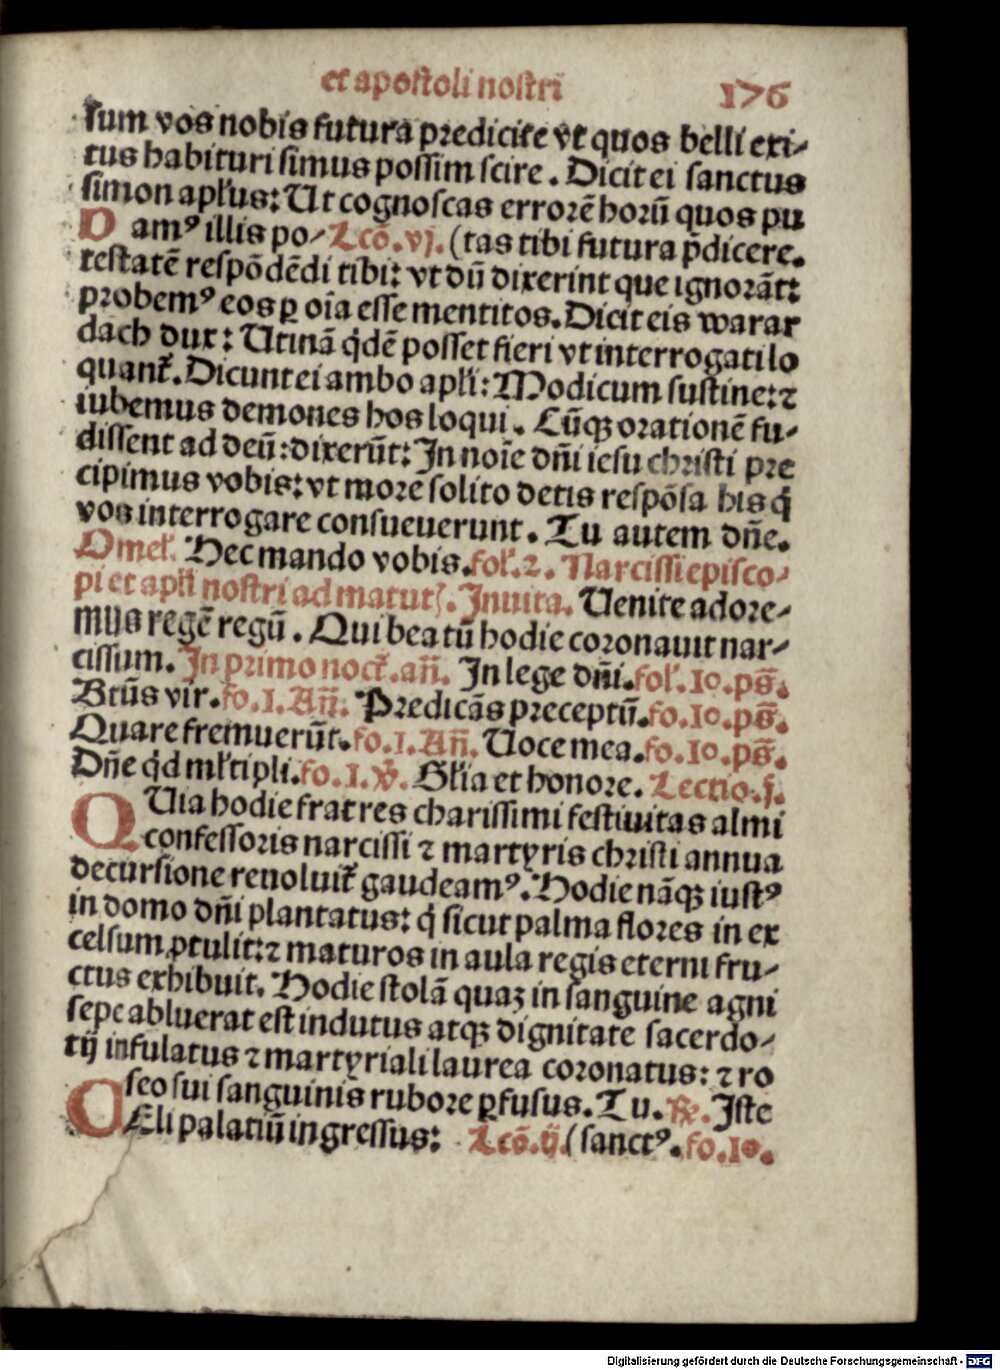 et apostoli nostri 176
sum vos nobis futura predicite vt quos belli exi-
tus habituri simus possim scire. Dicit ei sanctus
simon apl'us: Ut cognoscas errorē horū quos pu
Damꝰ illis po- Lcō. vj. (tas tibi futura p̄dicere.
testatē respōdēdi tibi: vt dū dixerint que ignorāt:
probemꝰ eos ꝑ oīa esse mentitos. Dicit eis warar
dach dux: Utinā q̇dē posset fieri vt interrogati lo
quant᷑. Dicunt ei ambo apl'i: Modicum sustine: ⁊
iubemus demones hos loqui. Cūqꝫ orationē fu-
dissent ad deū: dixerūt: In noīe dn̄i iesu christi pre
cipimus vobis: vt more solito detis respōsa his q̇
vos interrogare consueuerunt. Tu autem dn̄e.
Omel'. Hec mando vobis. fol'. 2. Narcissi episco-
pi et apl'i nostri ad matutꝭ. Inuita. Uenite adore-
mus regē regū. Qui beatū hodie coronauit nar-
cissum. In primo noct᷑. an̄. In lege dn̄i. fol'. 10. ps̄.
Btūs vir. fo. 1. An̄. Predicās preceptū. fo. 10. ps̄.
Quare fremuerūt. fo. 1. An̄. Uoce mea. fo. 10. ps̄.
Dn̄e q̇d ml'tipli. fo. 1. ℣. Gl'ia et honore. Lectio. j.
QUia hodie fratres charissimi festiuitas almi
confessoris narcissi ⁊ martyris christi annua
decursione reuoluit᷑ gaudeamꝰ. Hodie nāqꝫ iustꝰ
in domo dn̄i plantatus: q̇ sicut palma flores in ex
celsum ꝓtulit: ⁊ maturos in aula regis eterni fru-
ctus exhibuit. Hodie stolā quaꝫ in sanguine agni
sepe abluerat est indutus atqꝫ dignitate sacerdo-
tij infulatus ⁊ martyriali laurea coronatus: ⁊ ro
seo sui sanguinis rubore ꝑfusus. Tu. ℟. Iste
CEli palatiū ingressus: Lcō. ij. (sanctꝰ. fo. 10.
Digitalisierung gefördert durch die Deutsche Forschungsgemeinschaft - DFG